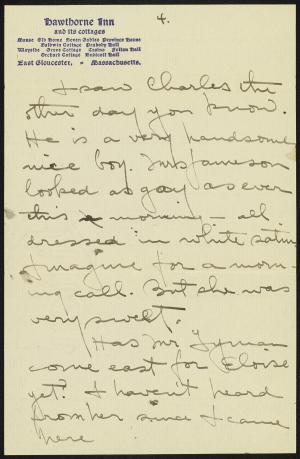 Hawthorne Inn
and its cottages
Manse Old Home Seven Gables Province House
Baldwin Cottage Peabody Hall
Wayside Grove Cottage Casino Fulton Hall
Orchard Cottage Endicott Hall
East Gloucester, - Massachusetts.
4.
I saw Charles the
other day you know.
He is a very handsome
nice boy. Mrs Jameson
looked as gay as ever
this morning - all
dressed in white satin
Imagine for a morn-
ing call. But she was
very sweet.
Has Mr. Lyman
come east for Eloise
yet? I haven't heard
from her since I came
here